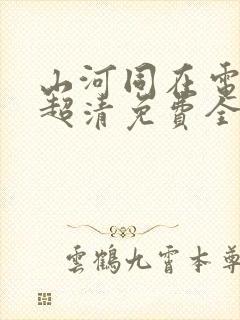 山河同在電
超清免費全
雲鶴九霄本尊